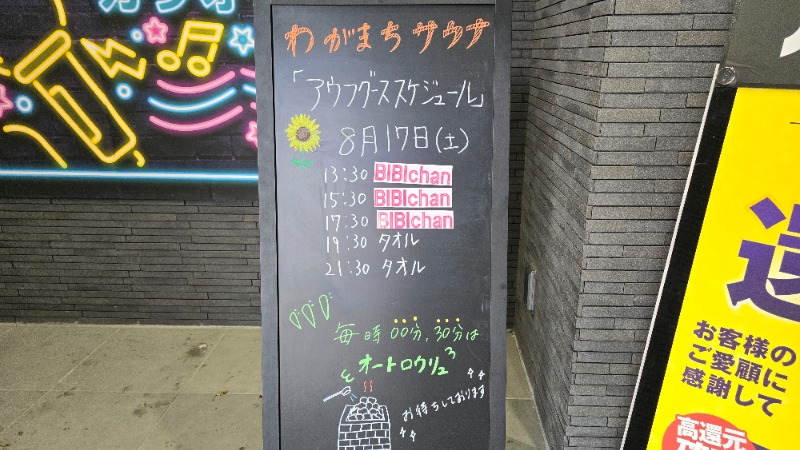 カラオ
わがまちサウナ
「アウフグーススケジュール」
8月17日(土)
13:30 BIBIchan
15:30 BIBIchan
17:30 BIBIchan
19:30 タオル
21:30 タオル
毎時00分、30分は
オートロウリュ
お待ちしております
お客様の
ご愛顧に
感謝して
高還元